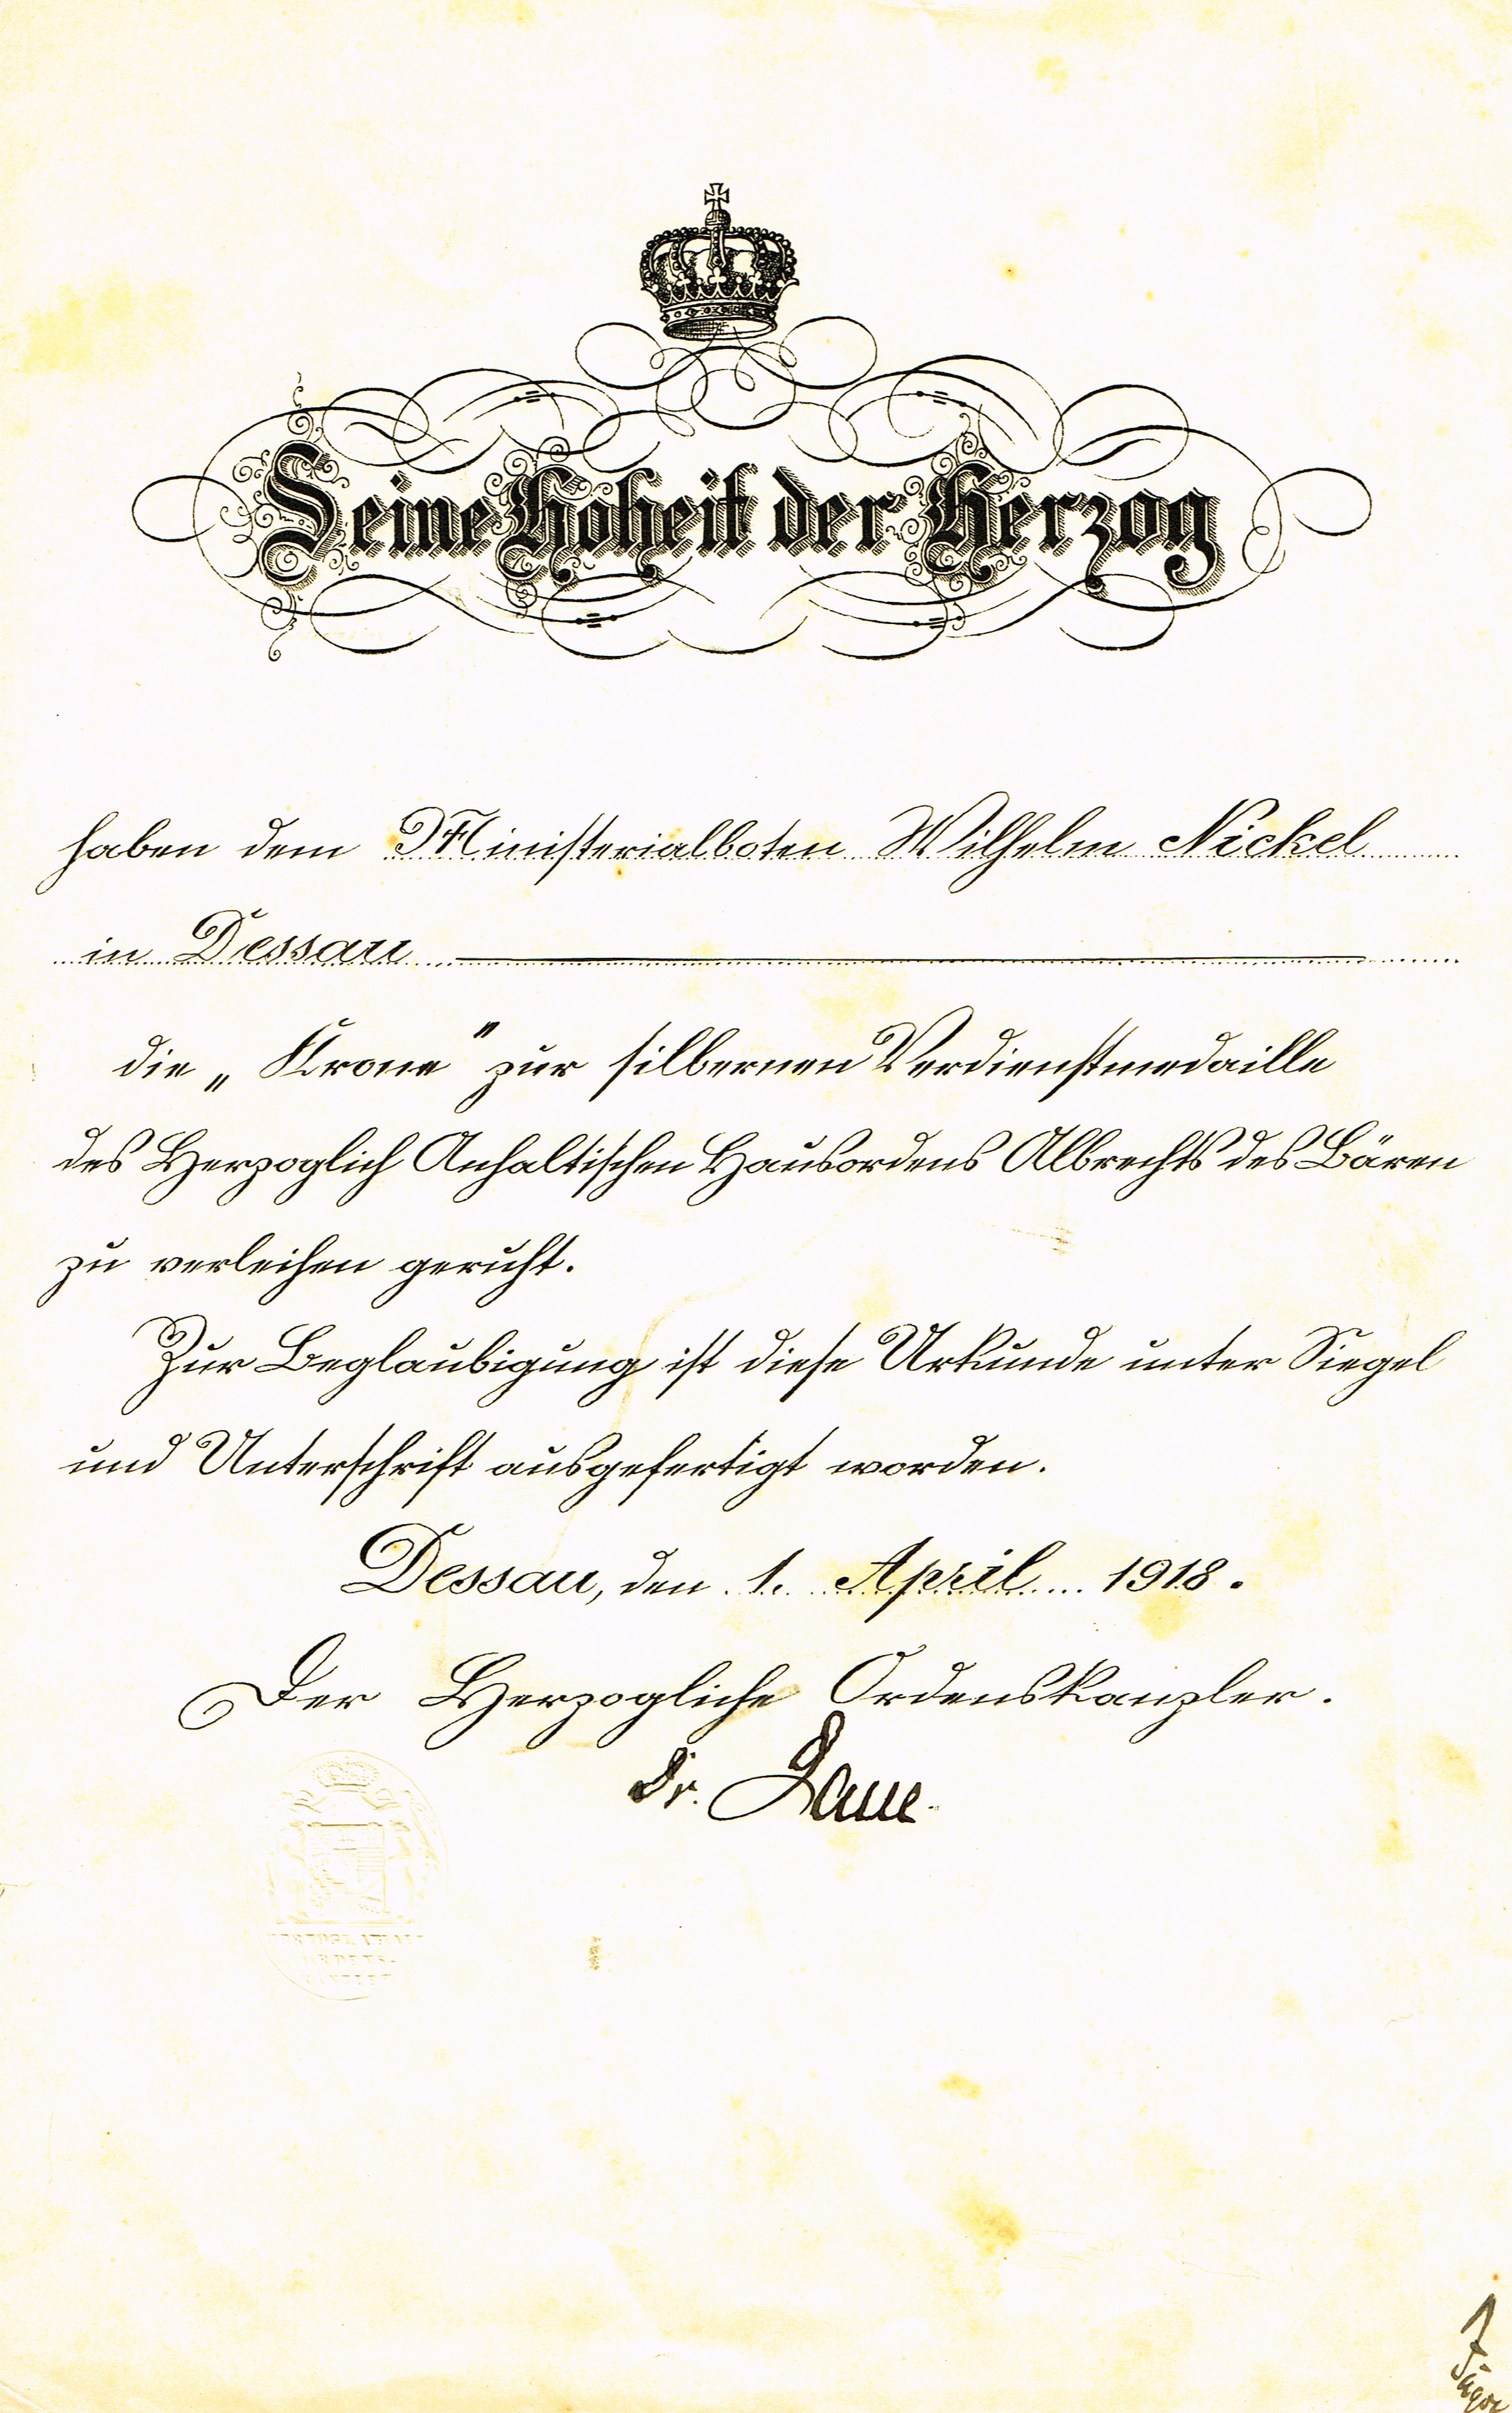 Seine Hoheit der Herzog
haben dem Ministerialboten Wilhelm Nickel
in Dessau
die „Krone" zur silbernen Verdienstmedaille
des Herzoglich Anhaltischen Hausordens Albrechts des Bären
zu verleihen geruht.
Zur Beglaubigung ist diese Urkunde unter Siegel
und Unterschrift ausgefertigt worden.
Dessau, den 1. April 1918.
Der Herzogliche Ordenskanzler.
Dr. Laue.